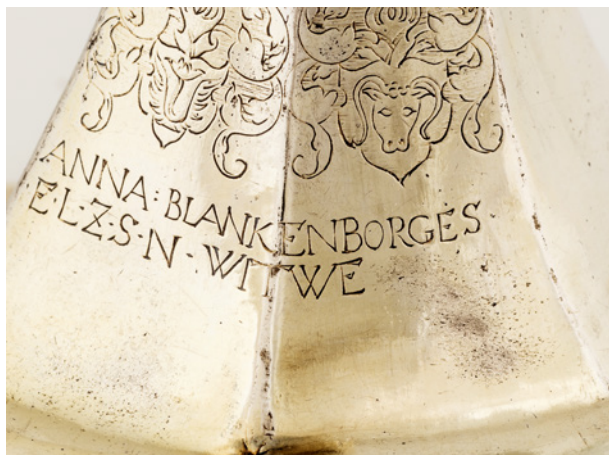 ANNA: BLANKENBORGES
E·L·Z·S·N - WITWE